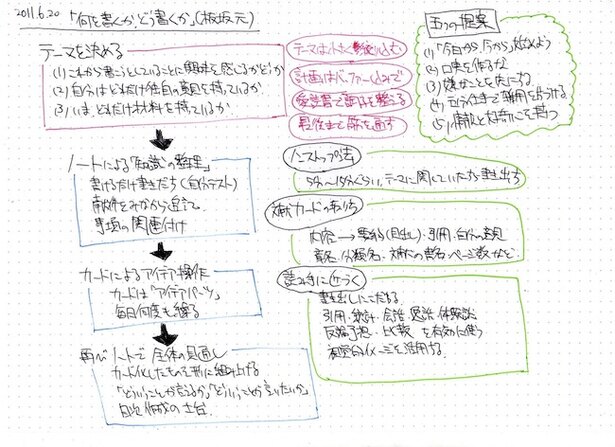 2011.6.20 「何を書くか、どう書くか」(板坂元)
テーマを決める
(1)これから書こうとしていることに興味を感じるかどうか
(2)自分はどれだけ独自の意見を持っているか
(3)いま、どれだけ材料を持っているか
テーマは小さく絞り込む
計画はバッファー込みで
愛読書で調子を整える
最後まで筋を通す
五つの提案
(1)「今日から、今から」始めよう
(2)口実を作るな
(3)嫌なことを先にやる
(4)
(5)
ノートによる「知識の整理」
書けるだけ書きだす(自分テスト)
事項の関連付け
ノンストップ法
5分〜15分くらい、テーマに関していたことを書き出す
文献カードの作り方
内容→要約(見出し)・引用・自分の意見
書名・分類名・文献の書名・ページ数など
カードによるアイデア操作
カードは「アイデアパーツ」
毎日何度も繰る
読み手に近づく
書き出しにこだわる
引用・統計・会話・逸話・体験談
反論予想・比較を有効に使う
視覚的イメージを活用する
再びノートで全体の見通し
カード化したものを形に組み上げる
「どういうことが言えるか」「どういうことを言いたいか」
目次作成の土台